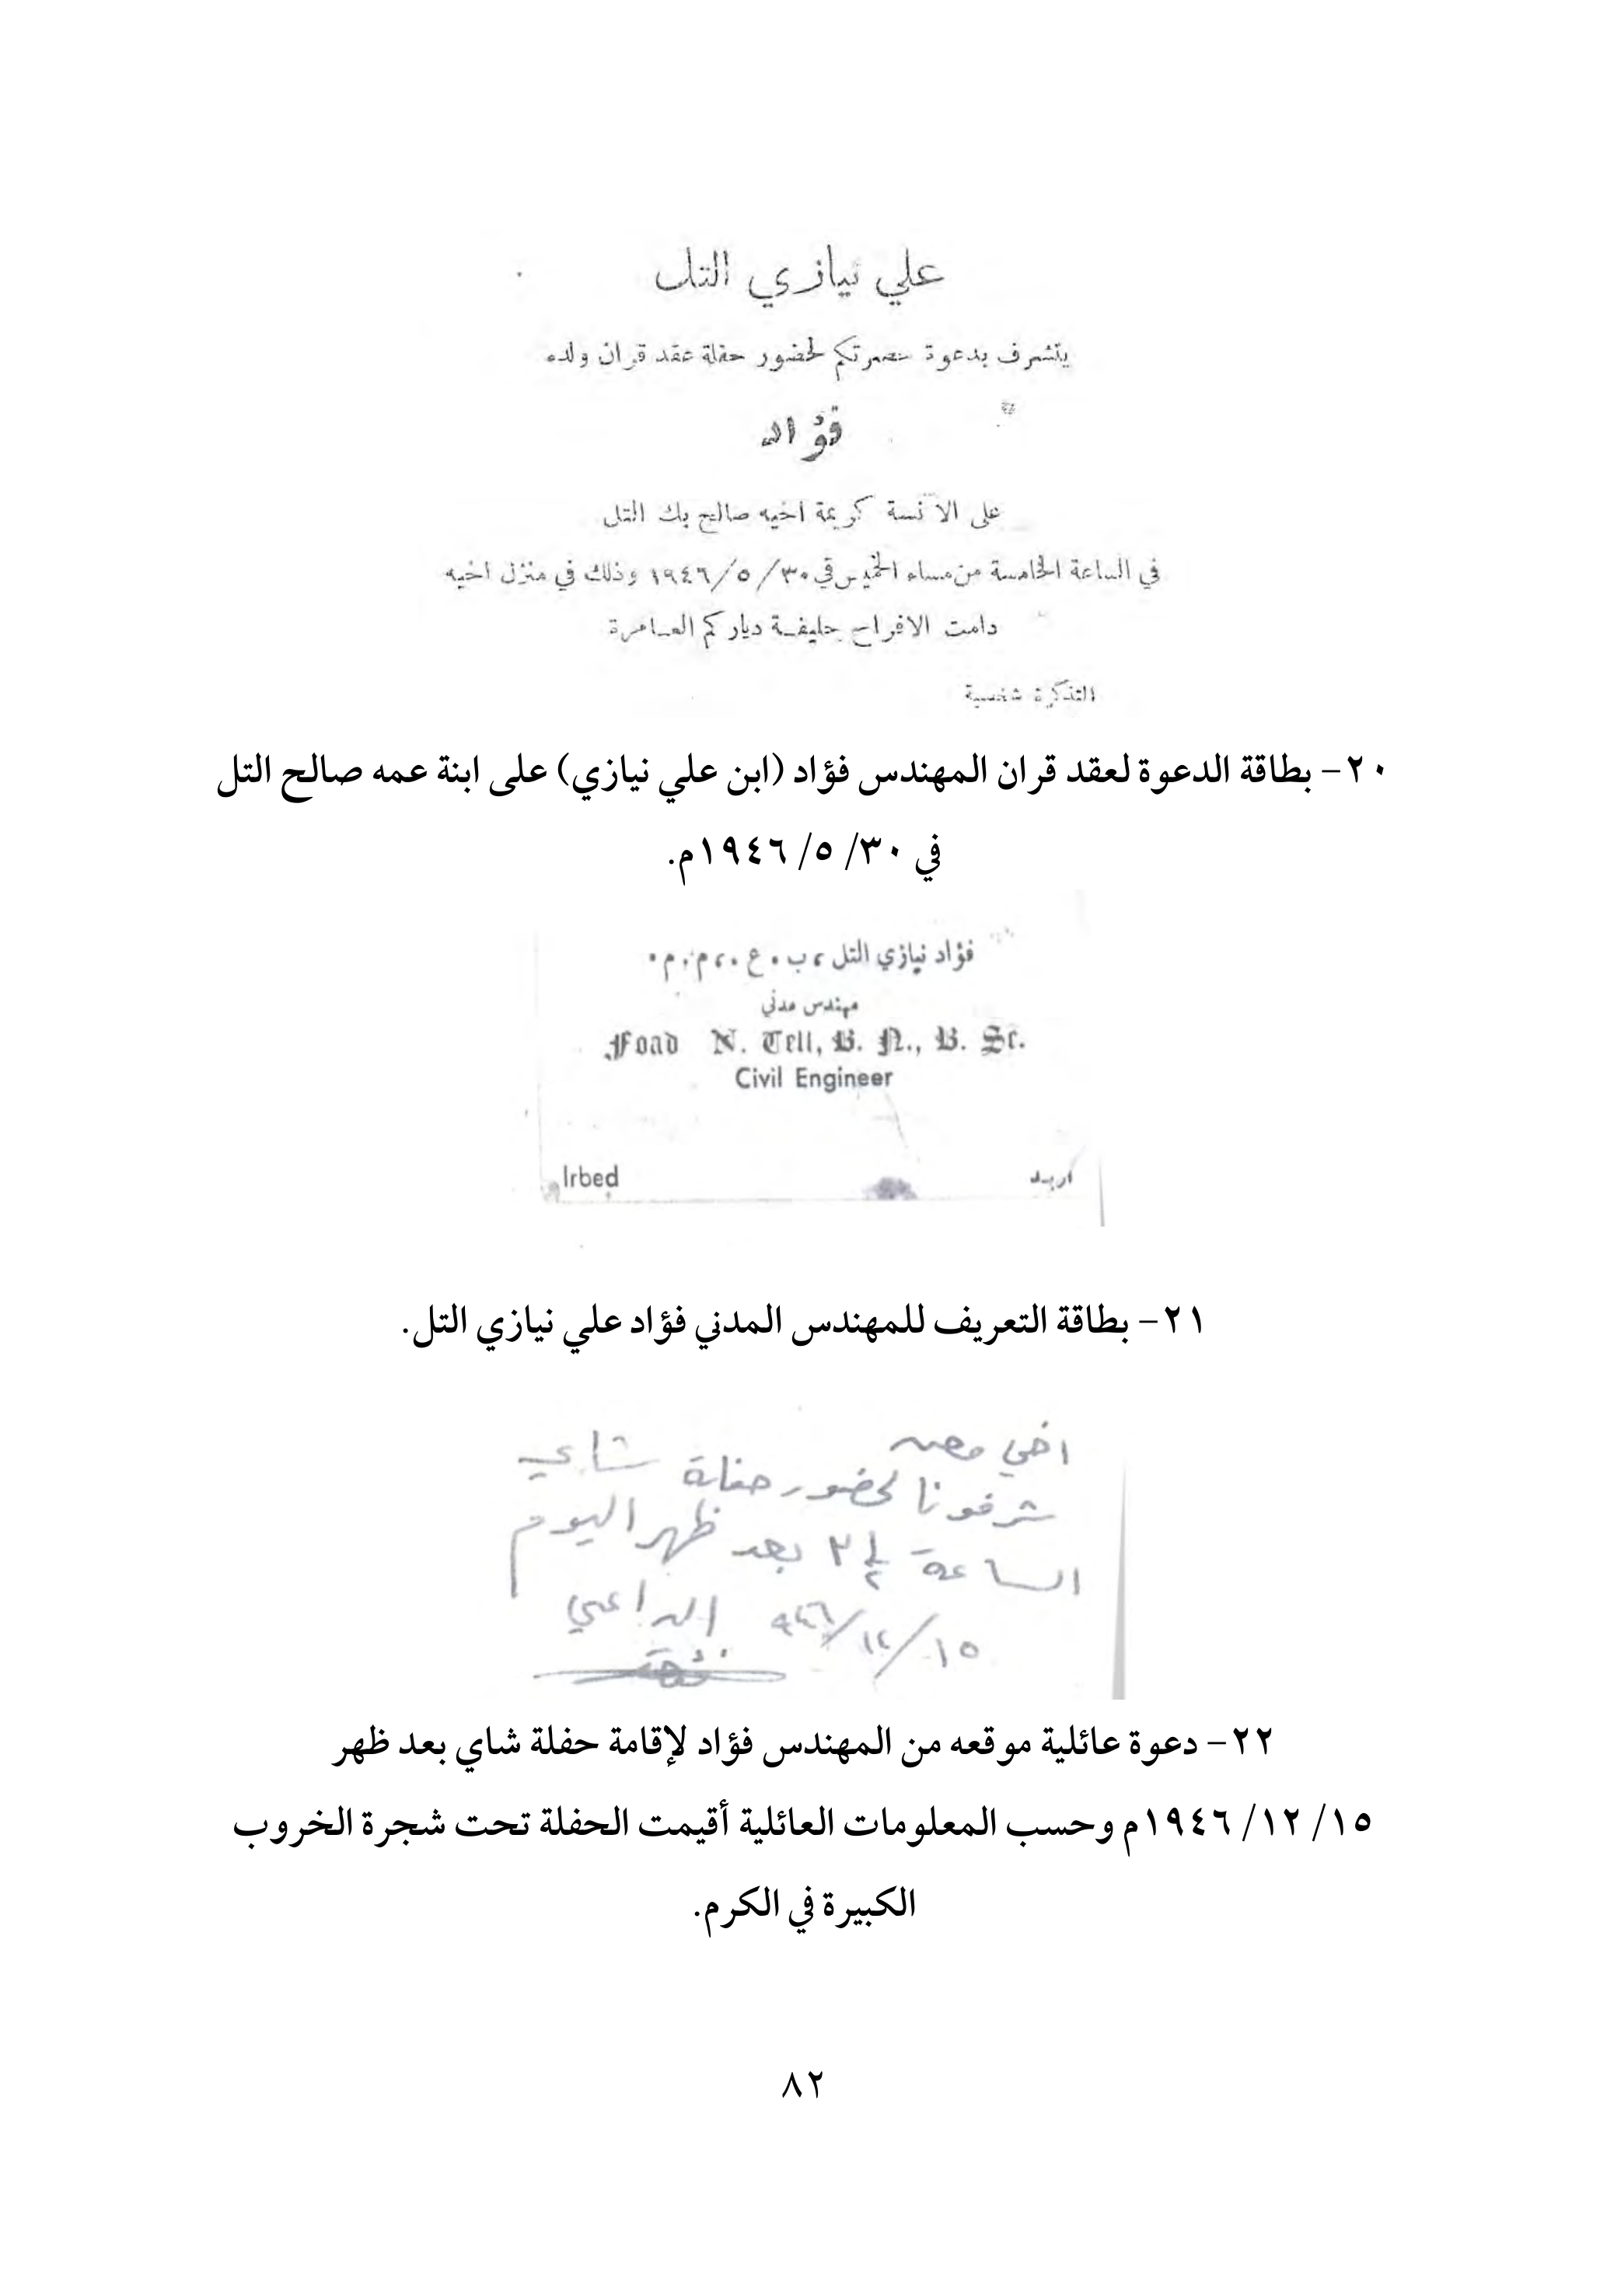 علي نيازي التل
يتشرف بدعوة حضرتكم لحضور حفلة عقد قران ولده
فؤاد
على الآنسة كريمة اخيه صالح بك التل
في الساعة الخامسة من مساء الخميس في ٣٠/٥/١٩٤٦ وذلك في منزل اخيه
دامت الافراح حليفة دياركم العامرة
التذكرة شخصية
٢٠- بطاقة الدعوة لعقد قران المهندس فؤاد (ابن علي نيازي) على ابنة عمه صالح التل
في ٣٠/ ٥/ ١٩٤٦م.
فؤاد نيازي التل ، ب . ع . ، م . م .
مهندس مدني
Foad N. Tell, B. N., B. Sc.
Civil Engineer
Irbed اربد
٢١- بطاقة التعريف للمهندس المدني فؤاد علي نيازي التل.
اخي
شرفونا لحضور حفلة شاي
الساعة بعد ظهر اليوم
١٥/١٢/٩٤٦ الداعي
٢٢- دعوة عائلية موقعه من المهندس فؤاد لإقامة حفلة شاي بعد ظهر
١٥/ ١٢/ ١٩٤٦م وحسب المعلومات العائلية أقيمت الحفلة تحت شجرة الخروب
الكبيرة في الكرم.
٨٢